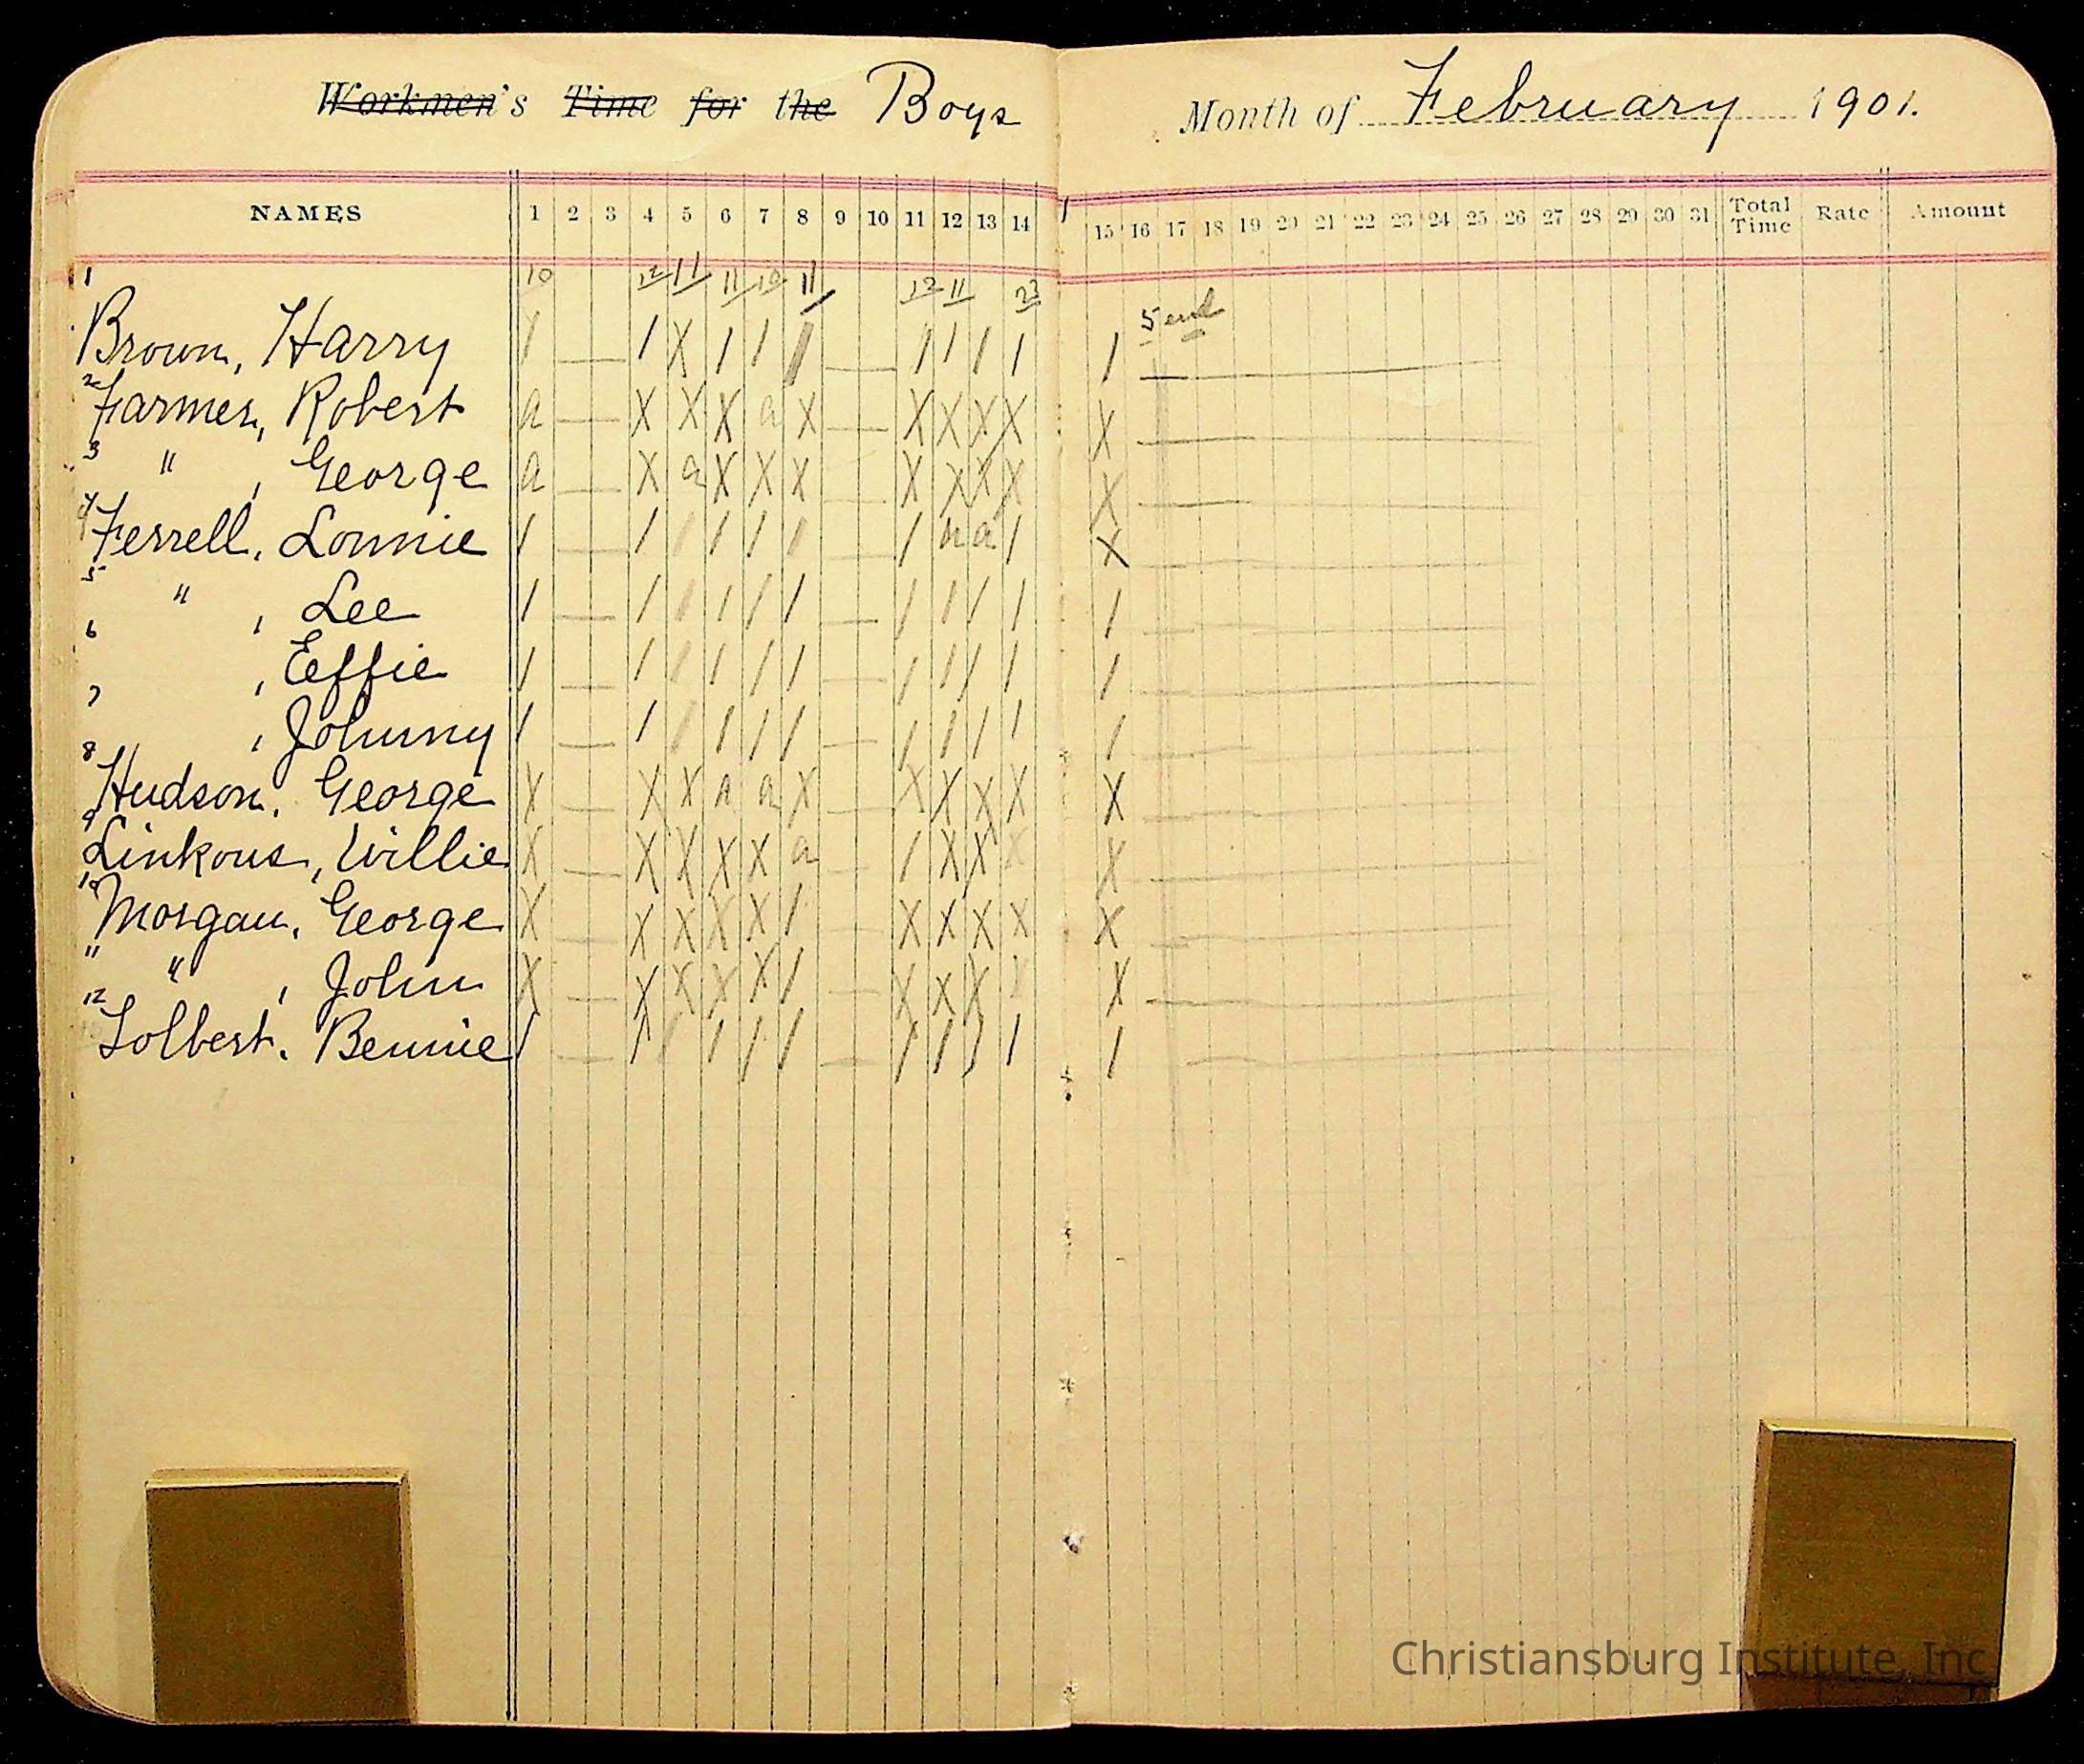 Workmen's Time for the Boys
Month of February 1901.
NAMES 1 2 3 4 5 6 7 8 9 10 11 12 13 14 15 16 17 18 19 20 21 22 23 24 25 26 27 28 29 30 31 Total Time Rate Amount
10 12 11 11 10 11 12 11 23
1 Brown, Harry 1 — 1 X 1 1 1 — 1 1 1 1 1 —
2 Farmer, Robert a — X X X a X — X X X X X —
3 " , George a — X a X X X — X X X X X —
4 Ferrell, Lonnie 1 — 1 1 1 1 1 — 1 a a 1 X —
5 " , Lee 1 — 1 1 1 1 1 — 1 1 1 1 1 —
6 , Eeffie 1 — 1 1 1 1 1 — 1 1 1 1 1 —
7 , Johnny 1 — 1 1 1 1 1 — 1 1 1 1 1 —
8 Hudson, George X — X X a a X — X X X X X —
9 Linkous, Willie X — X X X X a — 1 X X X X —
10 Morgan, George X — X X X X 1 — X X X X X —
11 " , John X — X X X X 1 — X X X X X —
12 Tolbert, Bennie 1 — 1 1 1 1 1 — 1 1 1 1 1 —
Christiansburg Institute, Inc